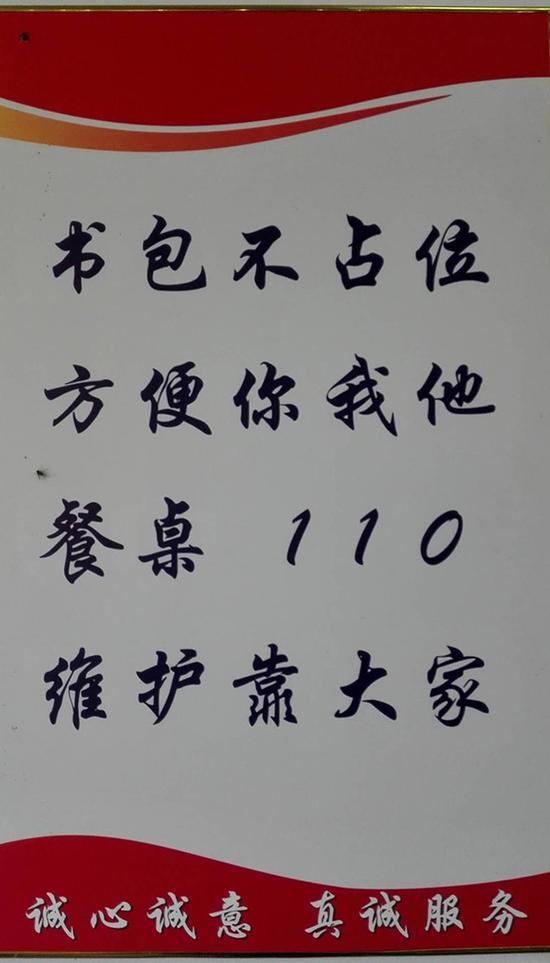 书包不占位
方便你我他
餐桌 110
维护靠大家
诚心诚意 真诚服务